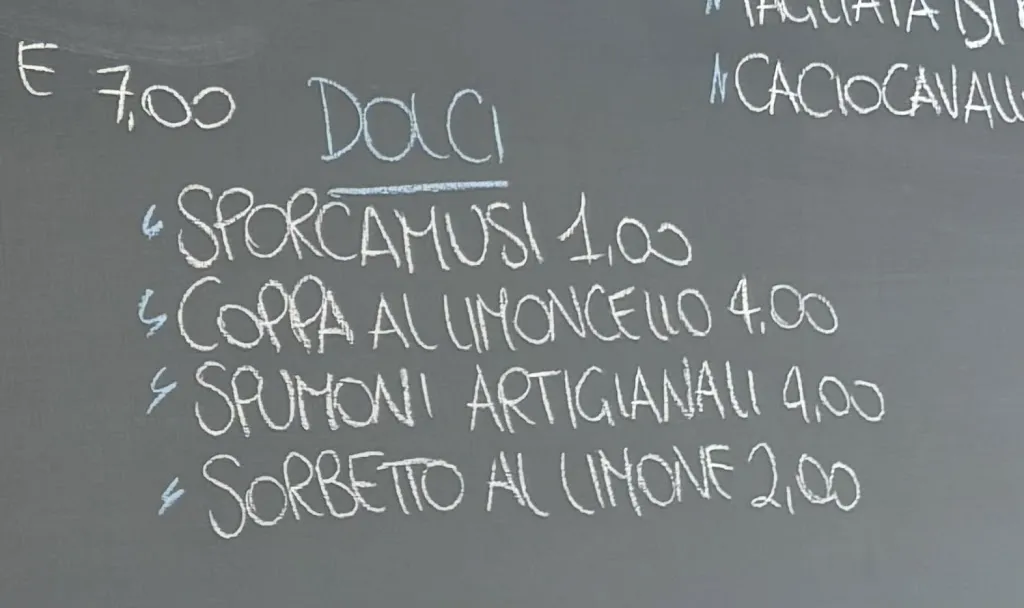 E 7,00
DOLCI
SPORCAMUSI 1,00
COPPA AL LIMONCELLO 4,00
SPUMONI ARTIGIANALI 4,00
SORBETTO AL LIMONE 2,00
TAGLIATA DI